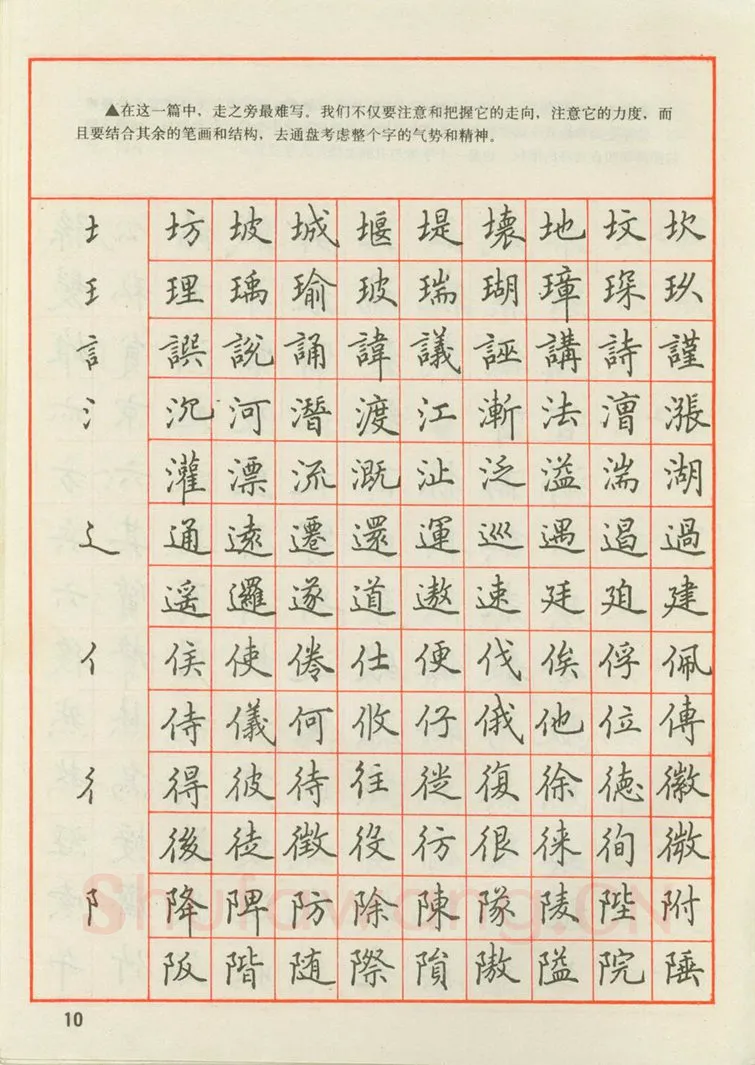 ▲在这一篇中，走之旁最难写。我们不仅要注意和把握它的走向，注意它的力度，而
且要结合其余的笔画和结构，去通盘考虑整个字的气势和精神。
坊 坡 城 堰 堤 壊 地 坟 坎
理 瑀 瑜 玻 瑞 瑚 璋 琛 玖
訁 譔 説 誦 諱 議 誣 講 詩 謹
氵 沉 河 潛 渡 江 漸 法 漕 漲
灌 漂 流 溉 沚 泛 溢 湍 湖
辶 通 遠 遷 還 運 巡 遇 遏 過
遥 邏 遂 道 遨 速 廷 廻 建
亻 侯 使 倦 仕 便 伐 俟 俘 佩
侍 儀 何 攸 仔 俄 他 位 傅
彳 得 彼 待 往 従 復 徐 德 徽
後 徒 徵 役 彷 很 徠 徇 微
阝 降 陴 防 除 陳 隊 陵 陛 附
阪 階 随 際 隕 隞 隘 院 陲
10
Shufawang.CN